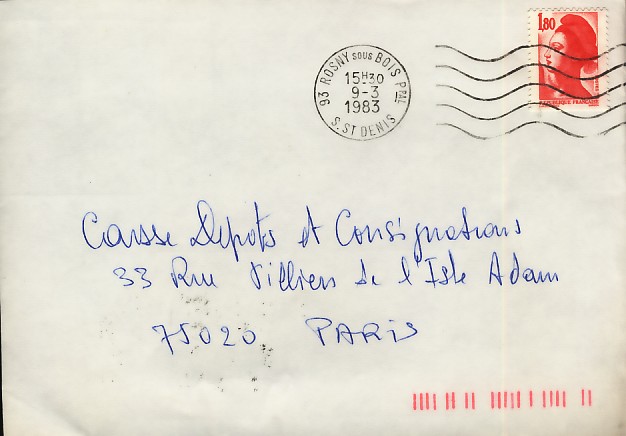 1,80
RÉPUBLIQUE FRANÇAISE
93 ROSNY SOUS BOIS PAL
15H30
9-3
1983
S. ST DENIS
Caisse Depots et Consignations
33 Rue Villiers de l'Isle Adam
75020 PARIS